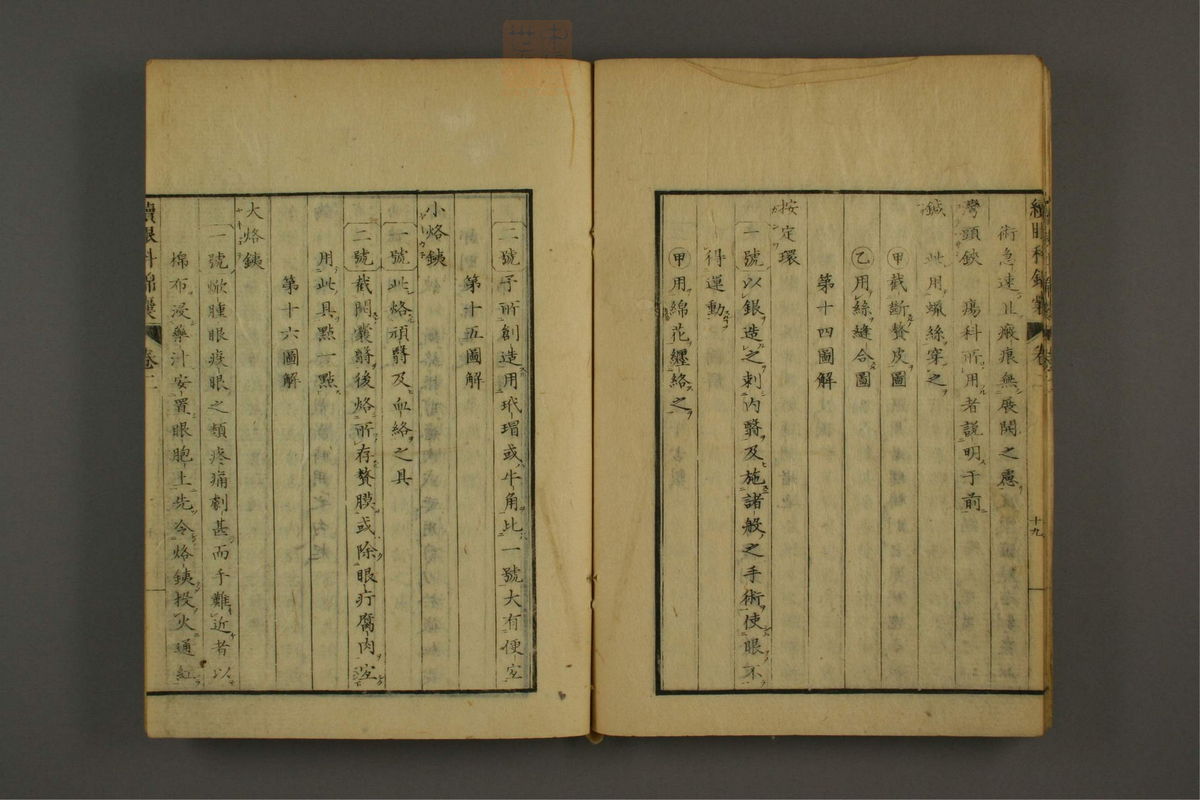 術急速且瘢痕無展開之患
彎頭鋏 瘍科所用者說明于前
鍼 此用蠟絲穿之
甲截斷贅皮圖
乙用絲縫合圖
第十四圖解
按定環
一號以銀造之刺內翳及施諸般之手術使眼不
得運動
甲用綿花纏絡之
十九
二號予所創造用玳瑁或牛角比一號大有便宜
第十五圖解
小烙鐵
一號此烙頑翳及血絡之具
二號截開囊翳後烙所存贅膜或除眼疔腐肉宜
用此具點點
第十六圖解
大烙鐵
一號焮腫眼痠眼之類疼痛劇甚而手難近者以
棉布浸藥汁安置眼胞上先令烙鐵投火通紅
續眼科錦囊 卷二